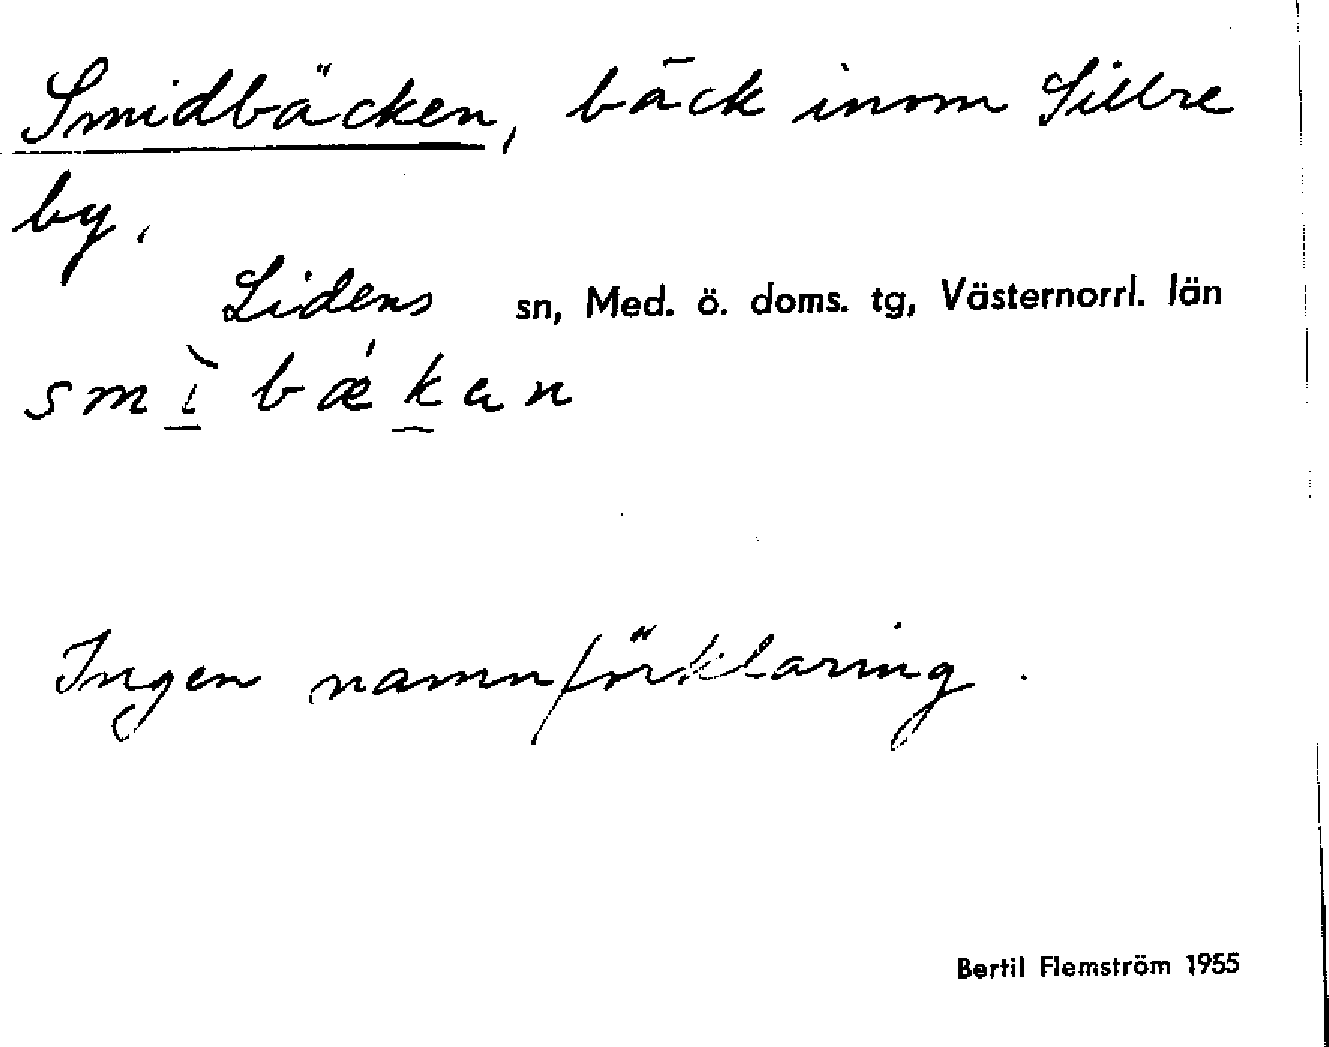 Smidbäcken, bäck inom Sillre
by.
Lidens sn, Med. ö. doms. tg, Västernorrl. län
smì̱ bǽk̲an
Ingen namnförklaring.
Bertil Flemström 1955